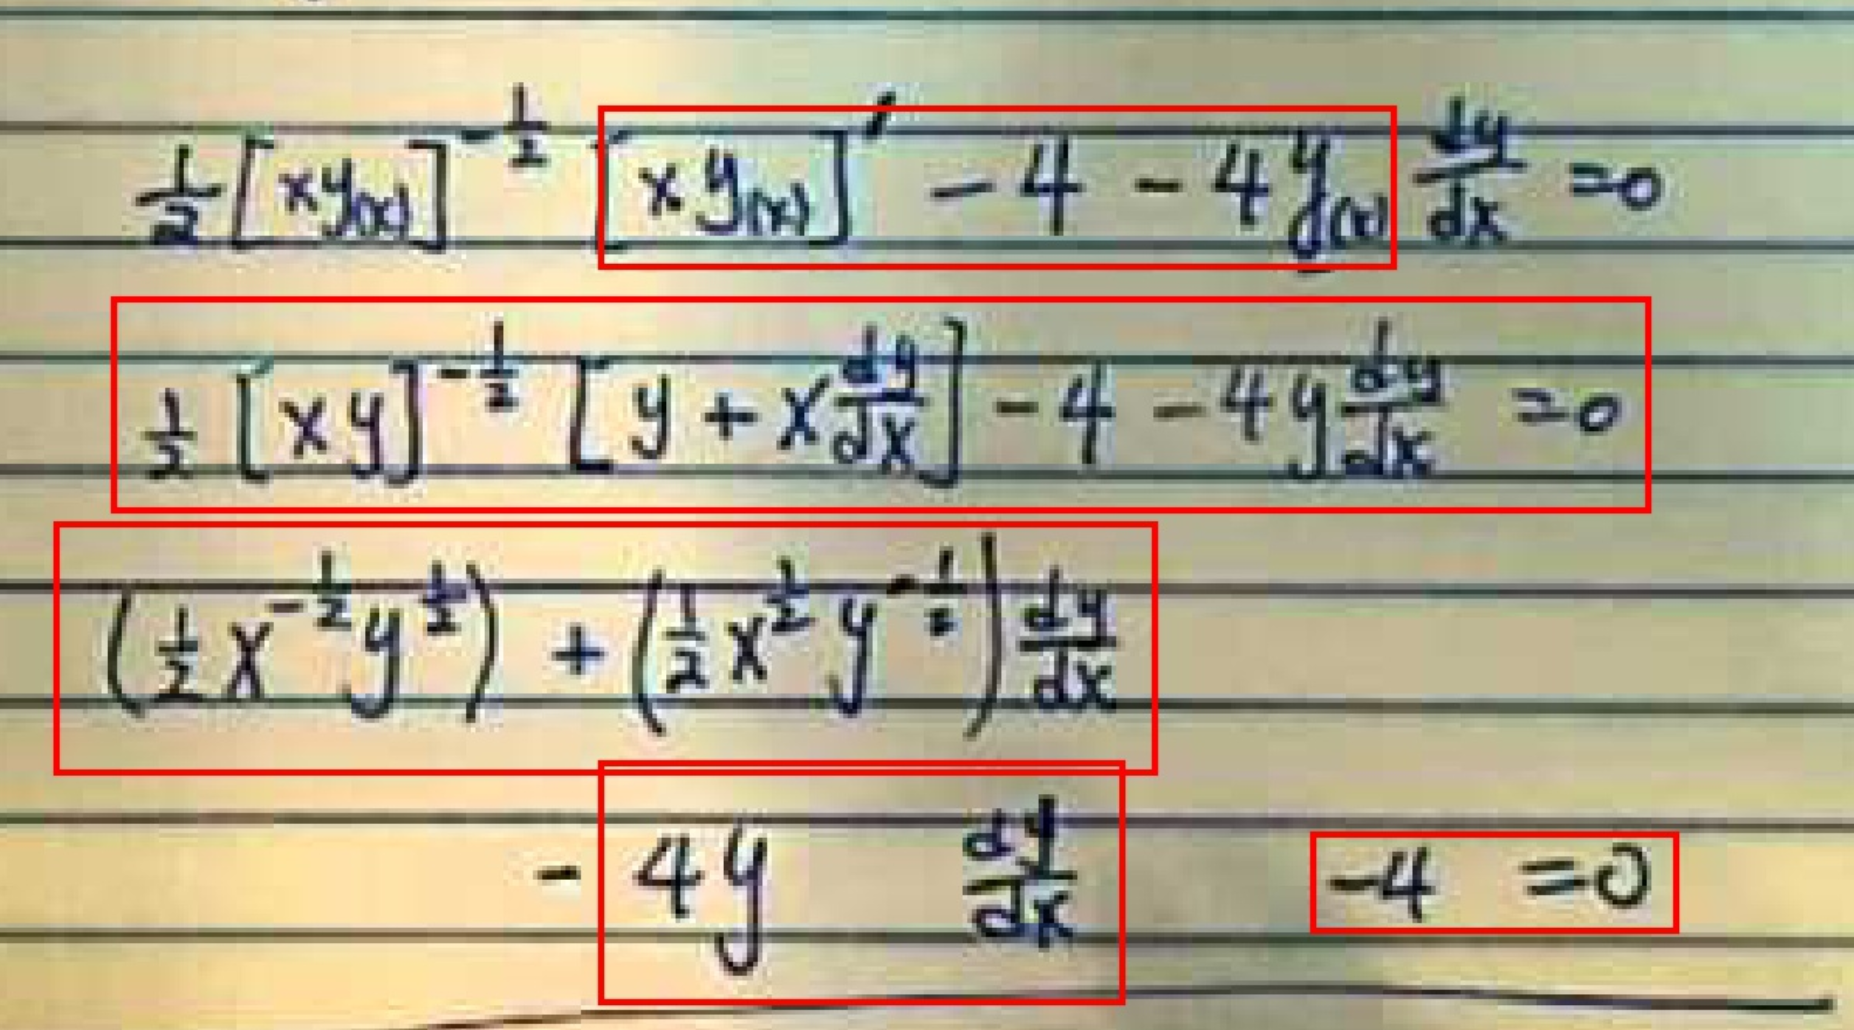 ½[xy(x)]^{-½} [xy(x)]' - 4 - 4y(x) dy/dx = 0
½[xy]^{-½} [y + x dy/dx] - 4 - 4y dy/dx = 0
(½x^{-½}y^{½}) + (½x^{½}y^{-½}) dy/dx
- 4y dy/dx -4 = 0